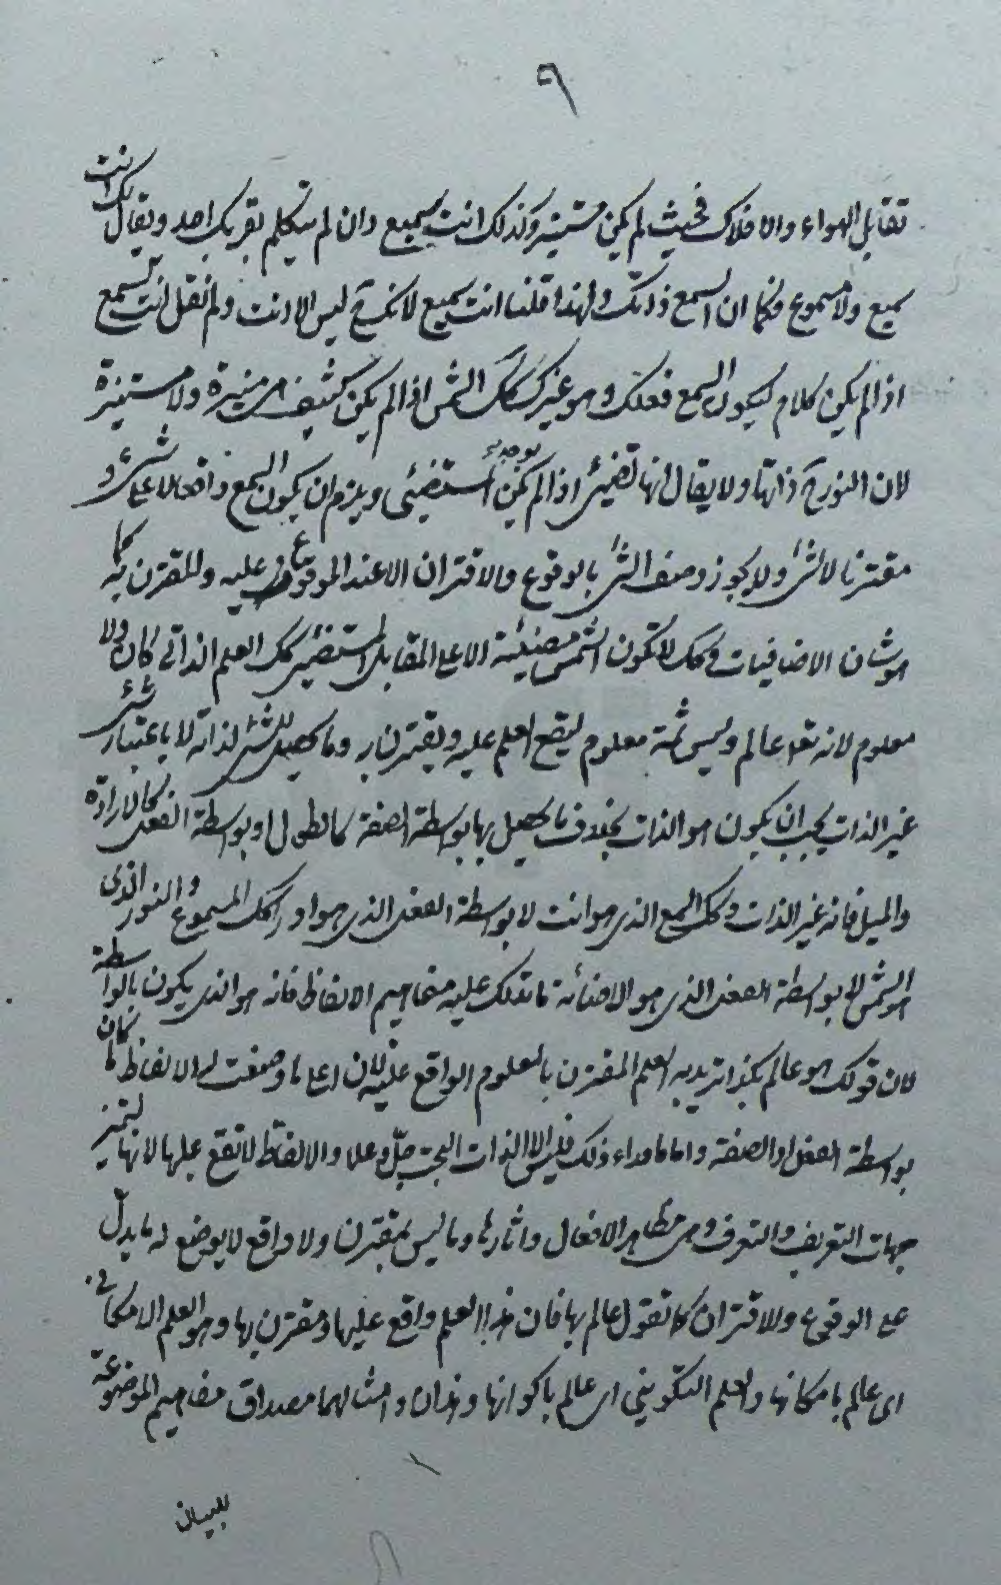 ٩
تقابل الهواء والافلاك فحيث لم يكن مستنير وكذلك انت سميع وان لم يتكلم بقربك احد ويقال لك انت
سميع ولا مسموع فكما ان السمع ذاتك ولهذا قلنا انت سميع لانك ح ليس الا انت ولم نقل انت تسمع
اذا لم يكن كلام ليكون السمع فعلك وهو غيرك كك الشمس اذا لم يكن كثيف هي منيرة ولا مستنيرة
لان النور ح ذاتها ولا يقال انها تضيئ اذا لم يكن يوجد مستضيئ ويلزم ان يكون السمع واقعا لا على شئ و
مقترنا لا بشئ ولا يجوز وصف الشئ بالوقوع والاقتران الا عند الموقوع عليه وللمقترن به كما
هو شان الاضافيات وكك لا تكون الشمس مضيئة الا على المقابل المستضيئ كك العلم الذاتي كان ولا
معلوم لانه تعا عالم وليس ثمة معلوم ليقع العلم عليه ويقترن به وما يحصل للشئ لذاته لا باعتبار شئ
غير الذات يجب ان يكون هو الذات بخلاف ما يحصل بها بواسطة الصفة كالطول او بواسطة الفعل كالارادة
والميل فانه غير الذات وكك السمع الذي هو انت لا بواسطة الفعل الذي هو ادراكك المسموع والنور الذي
هو الشمس لا بواسطة الفعل الذي هو الاضائة ما تدلك عليه مفاهيم الالفاظ فانه هو الذي يكون بالواسطة
لان قولك هو عالم بكذا تريد به العلم المقترن بالمعلوم الواقع عليه لان اعلا ما وضعت له الالفاظ ما كان
بواسطة الفعل او الصفة واما ما وراء ذلك فليس الا الذات البحت جل وعلا والالفاظ لا تقع عليها لانها لتميز
جهات التعريف والتعرف وهي مظاهر الافعال واثارها وما ليس بمقترن ولا واقع لا يوضع له ما يدل
على الوقوع والاقتران كما تقول عالم بها فان هذا العلم واقع عليها ومقترن بها وهو العلم الامكاني
اي عالم بامكانها والعلم التكويني اي عالم باكوانها وهذان وامثالهما مصداق مفاهيم الموضوعة
للبيان